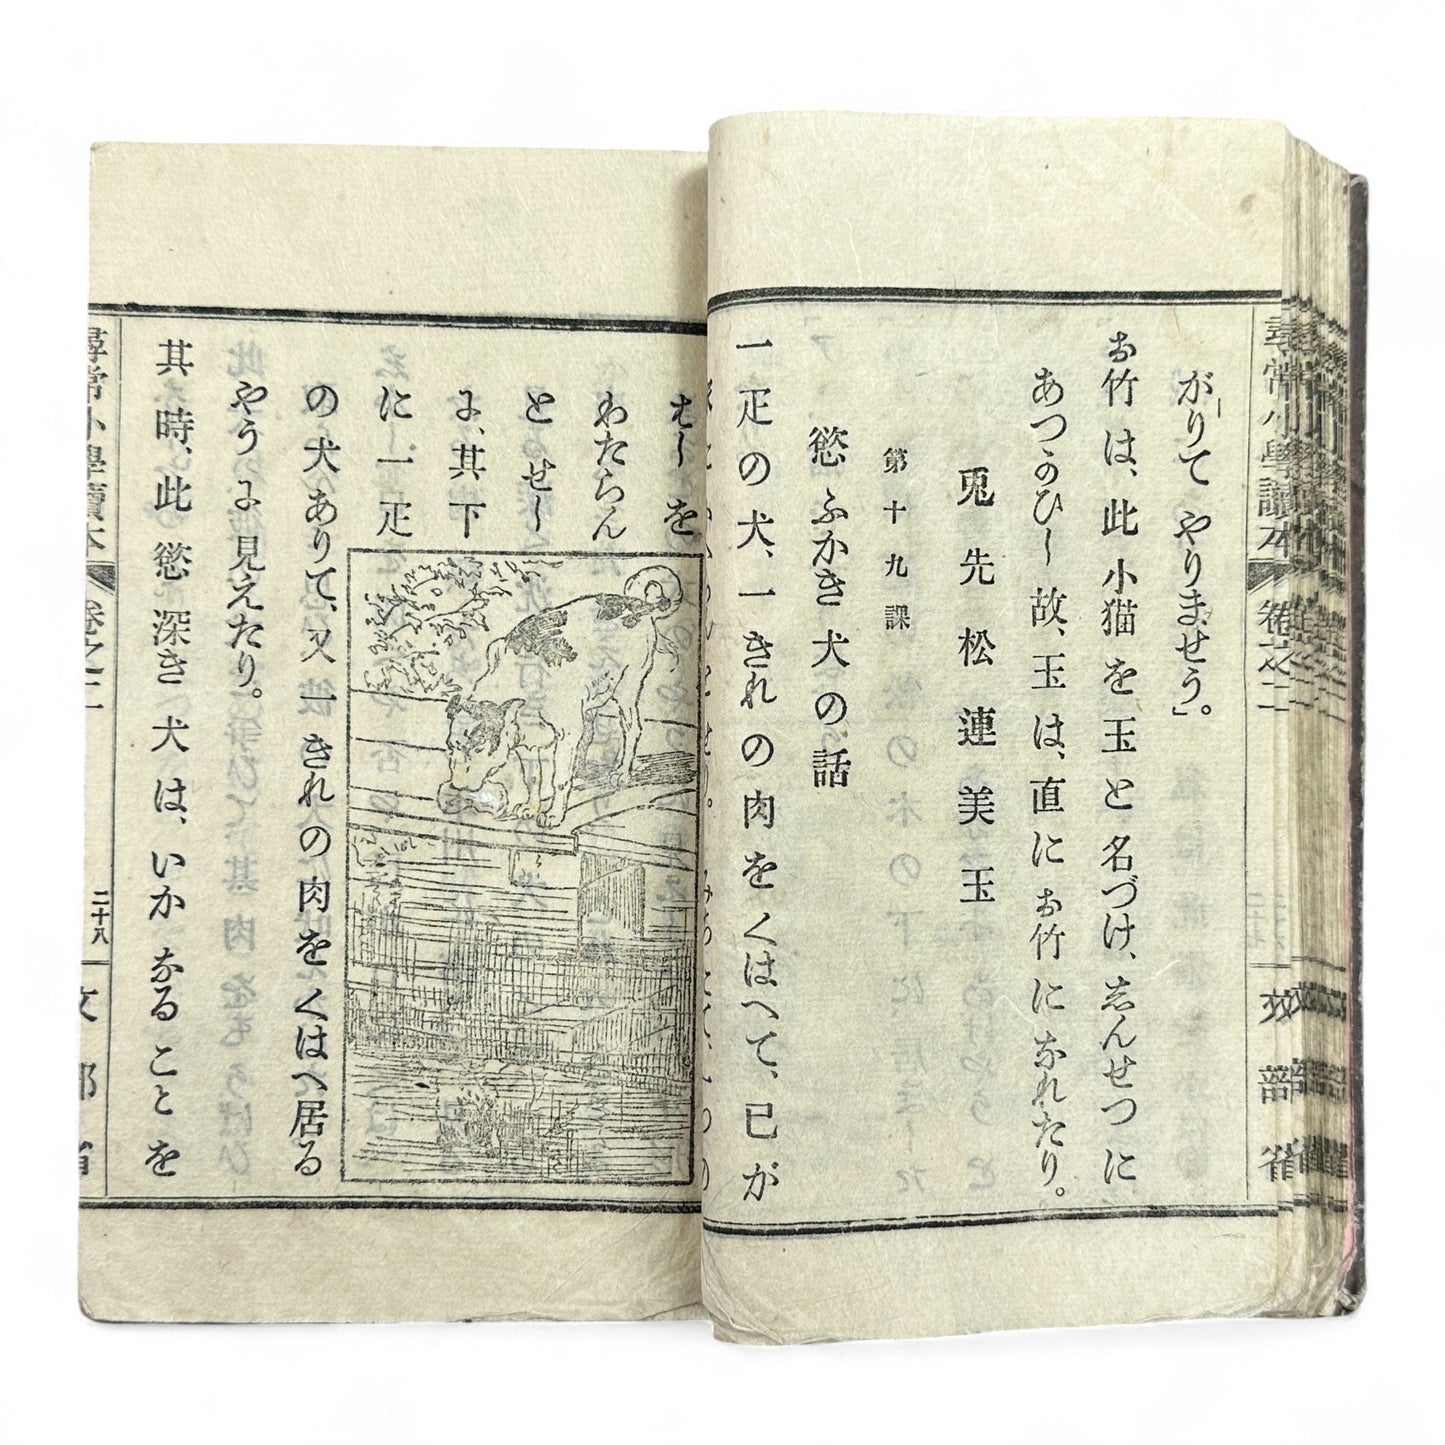 がりて やりませう」。
お竹は、此小猫を玉と名づけ、しんせつに
あつかひし故、玉は、直にお竹になれたり。
兎 先 松 連 美 玉
第十九課
慾ふかき犬の話
一疋の犬、一きれの肉をくはへて、已が
はしを
わたらん
とせし
に、其下
に一疋
の犬ありて、又一きれの肉をくはへ居る
やうに見えたり。
其時、此慾深き犬は、いかなることを
尋常小學讀本 卷之二
文部省
尋常小學讀本 卷之二 二十八
文部省